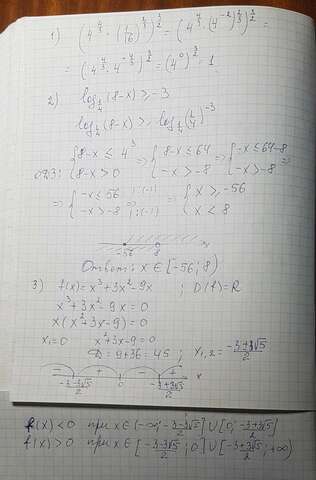 1) (4^{4/3} · (1/16)^{2/3})^{3/2} = (4^{4/3} · (4^{-2})^{2/3})^{3/2} =
= (4^{4/3} · 4^{-4/3})^{3/2} = (4^0)^{3/2} = 1
2) log_{1/4} (8-x) ≥ -3
log_{1/4} (8-x) ≥ log_{1/4} (1/4)^{-3}
ОДЗ: { 8-x ≤ 4^3 ; 8-x > 0 ⇒ { 8-x ≤ 64 ; -x > -8 ⇒ { -x ≤ 64-8 ; -x > -8 ⇒
⇒ { -x ≤ 56 | :(-1) ; -x > -8 | :(-1) ⇒ { x ≥ -56 ; x < 8
-56 8 x
Ответ: x ∈ [-56; 8)
3) f(x) = x^3+3x^2-9x ; D(f)=R
x^3+3x^2-9x=0
x(x^2+3x-9)=0
x_1=0 x^2+3x-9=0
D=9+36=45 ; x_{1,2} = (-3±3√5)/2
- + - + x
(-3-3√5)/2 0 (-3+3√5)/2
f(x)<0 при x∈(-∞; (-3-3√5)/2] ∪ [0; (-3+3√5)/2]
f(x)>0 при x∈[(-3-3√5)/2; 0] ∪ [(-3+3√5)/2; +∞)